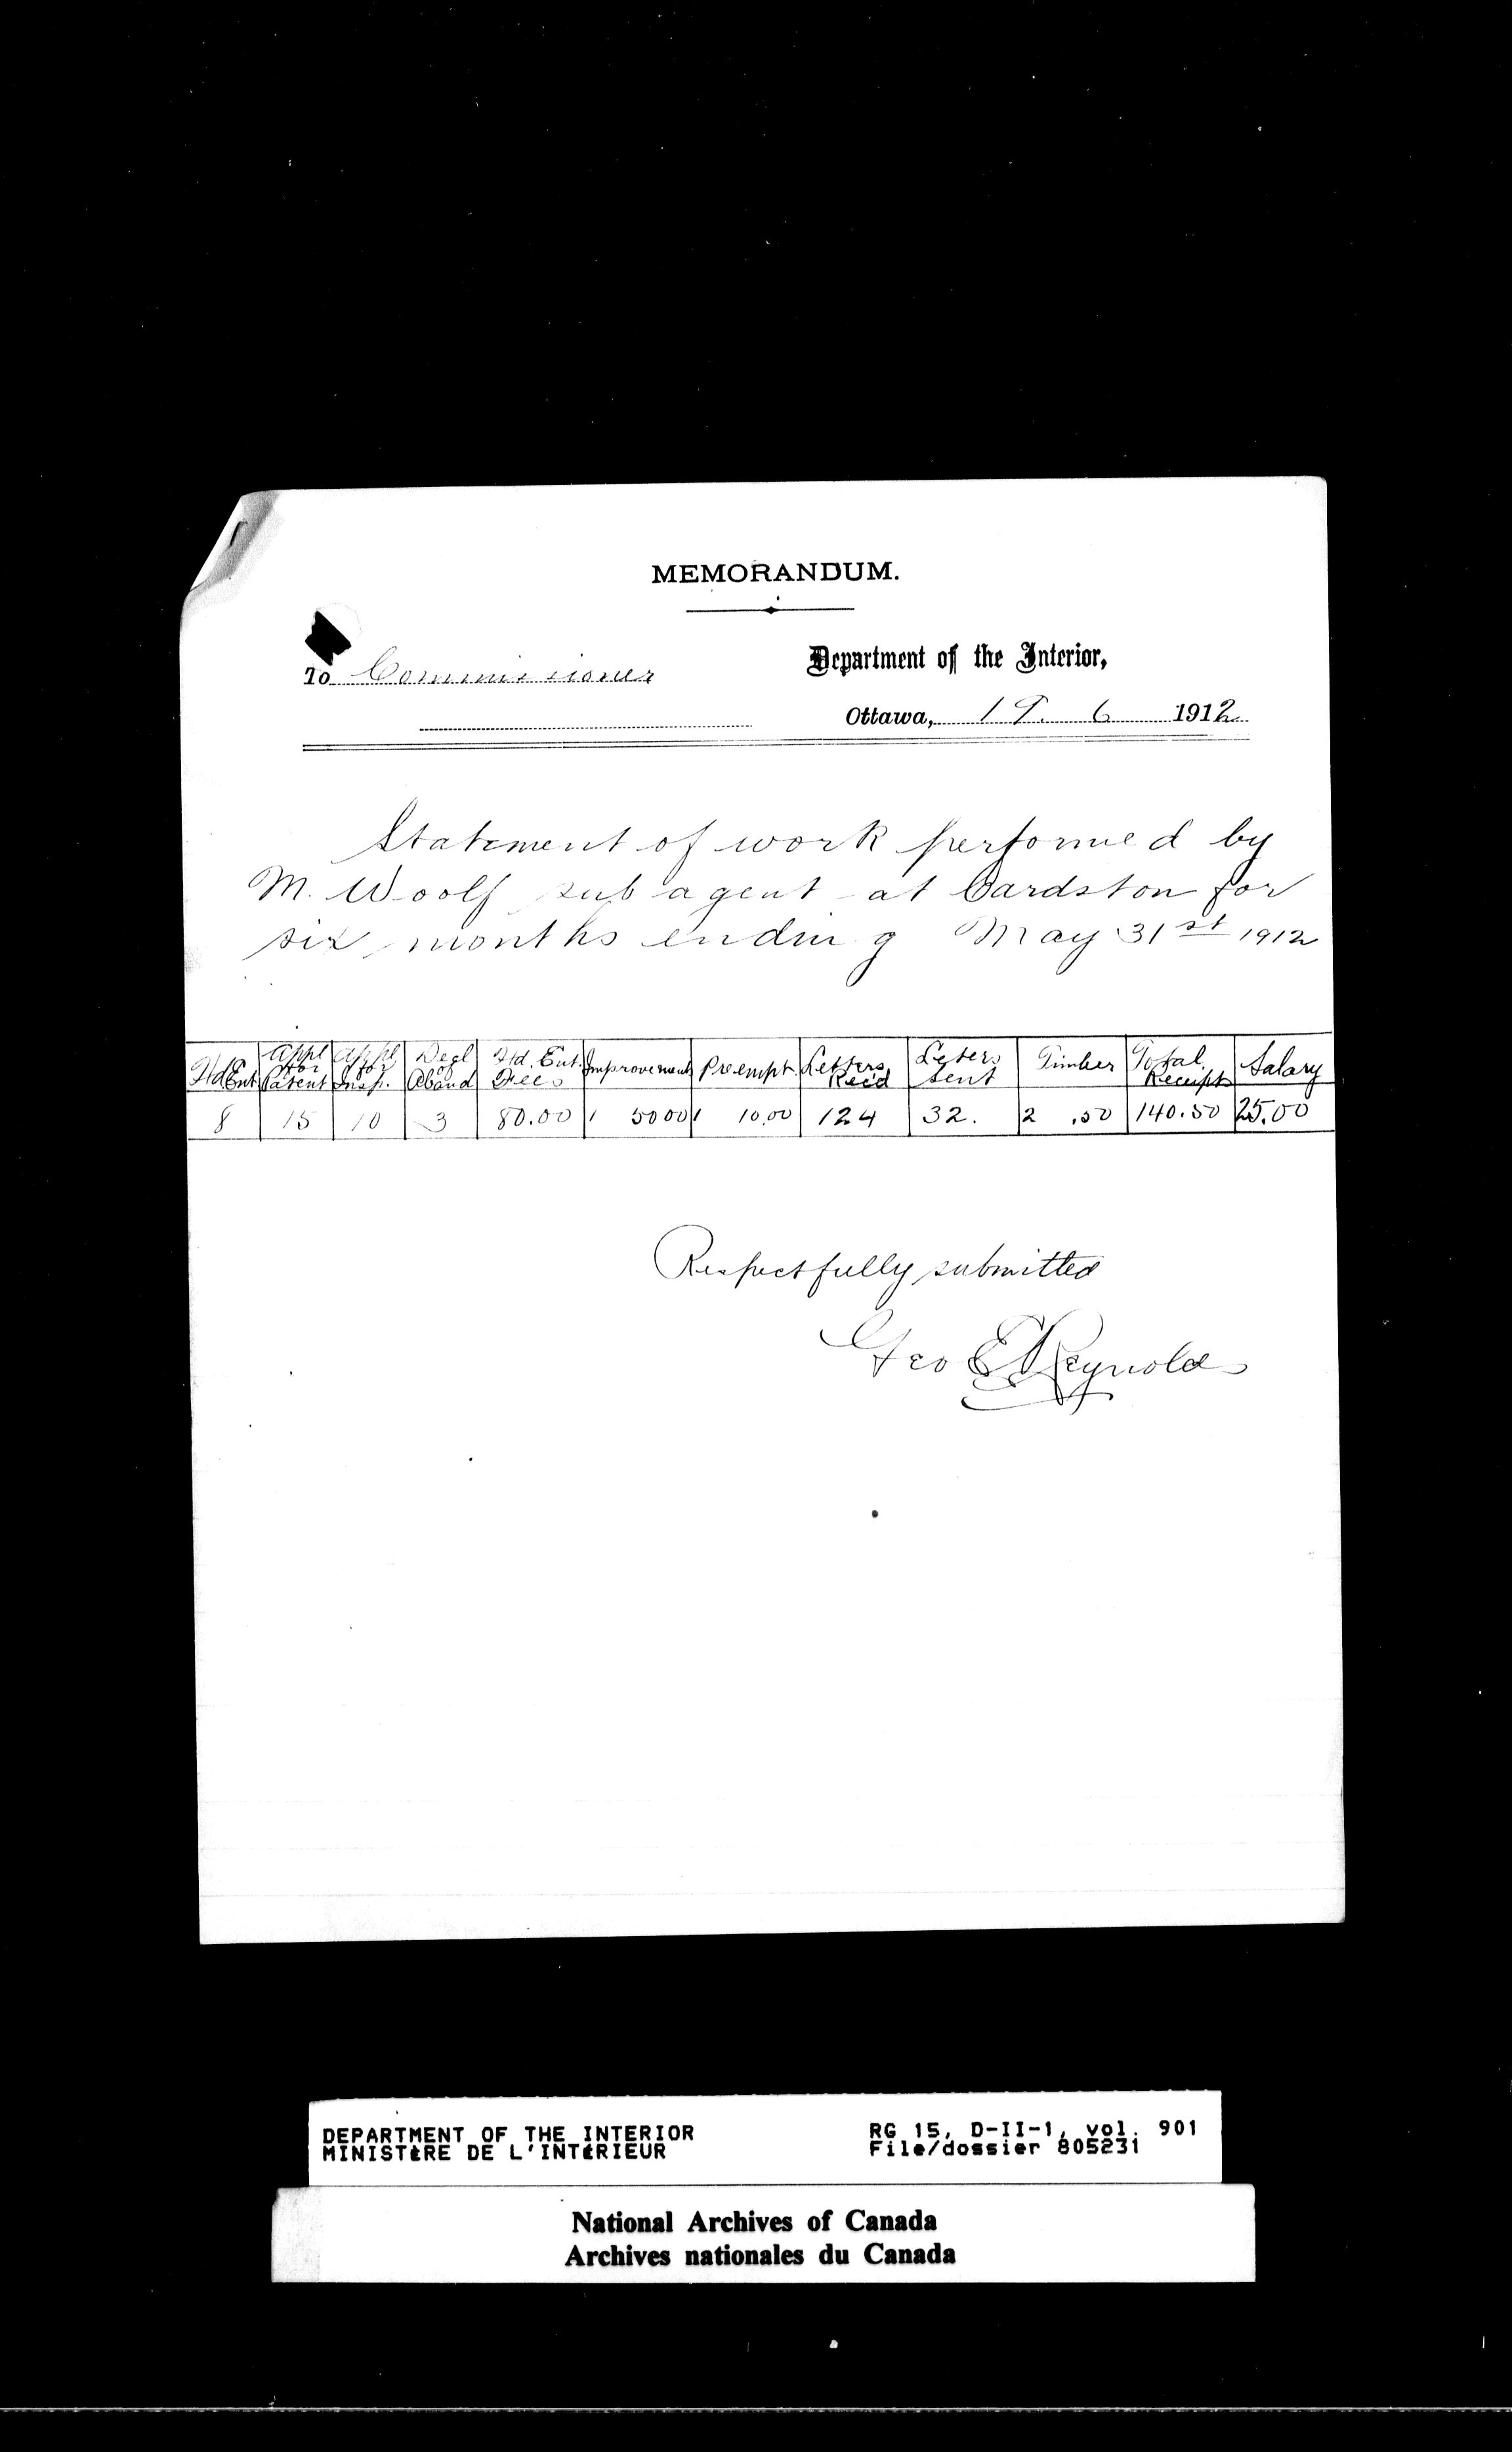 MEMORANDUM.
To Commissioner
Department of the Interior,
Ottawa, 19. 6 1912
Statement of work performed by
M. Woolf sub agent at Cardston for
six months ending May 31st 1912
Hd Ent | Appl for Patent | Appl for Insp. | Decl of Aband | Hd. Ent. Fees | Improvements | Preempt. | Letters Rec'd | Leters sent | Timber | Total Receipts | Salary
8 | 15 | 10 | 3 | 80.00 | 1 50 00 | 1 10.00 | 124 | 32. | 2 .50 | 140.50 | 25.00
Respectfully submitted
Geo E Reynolds
DEPARTMENT OF THE INTERIOR
MINISTÈRE DE L'INTÉRIEUR
RG 15, D-II-1, vol. 901
File/dossier 805231
National Archives of Canada
Archives nationales du Canada